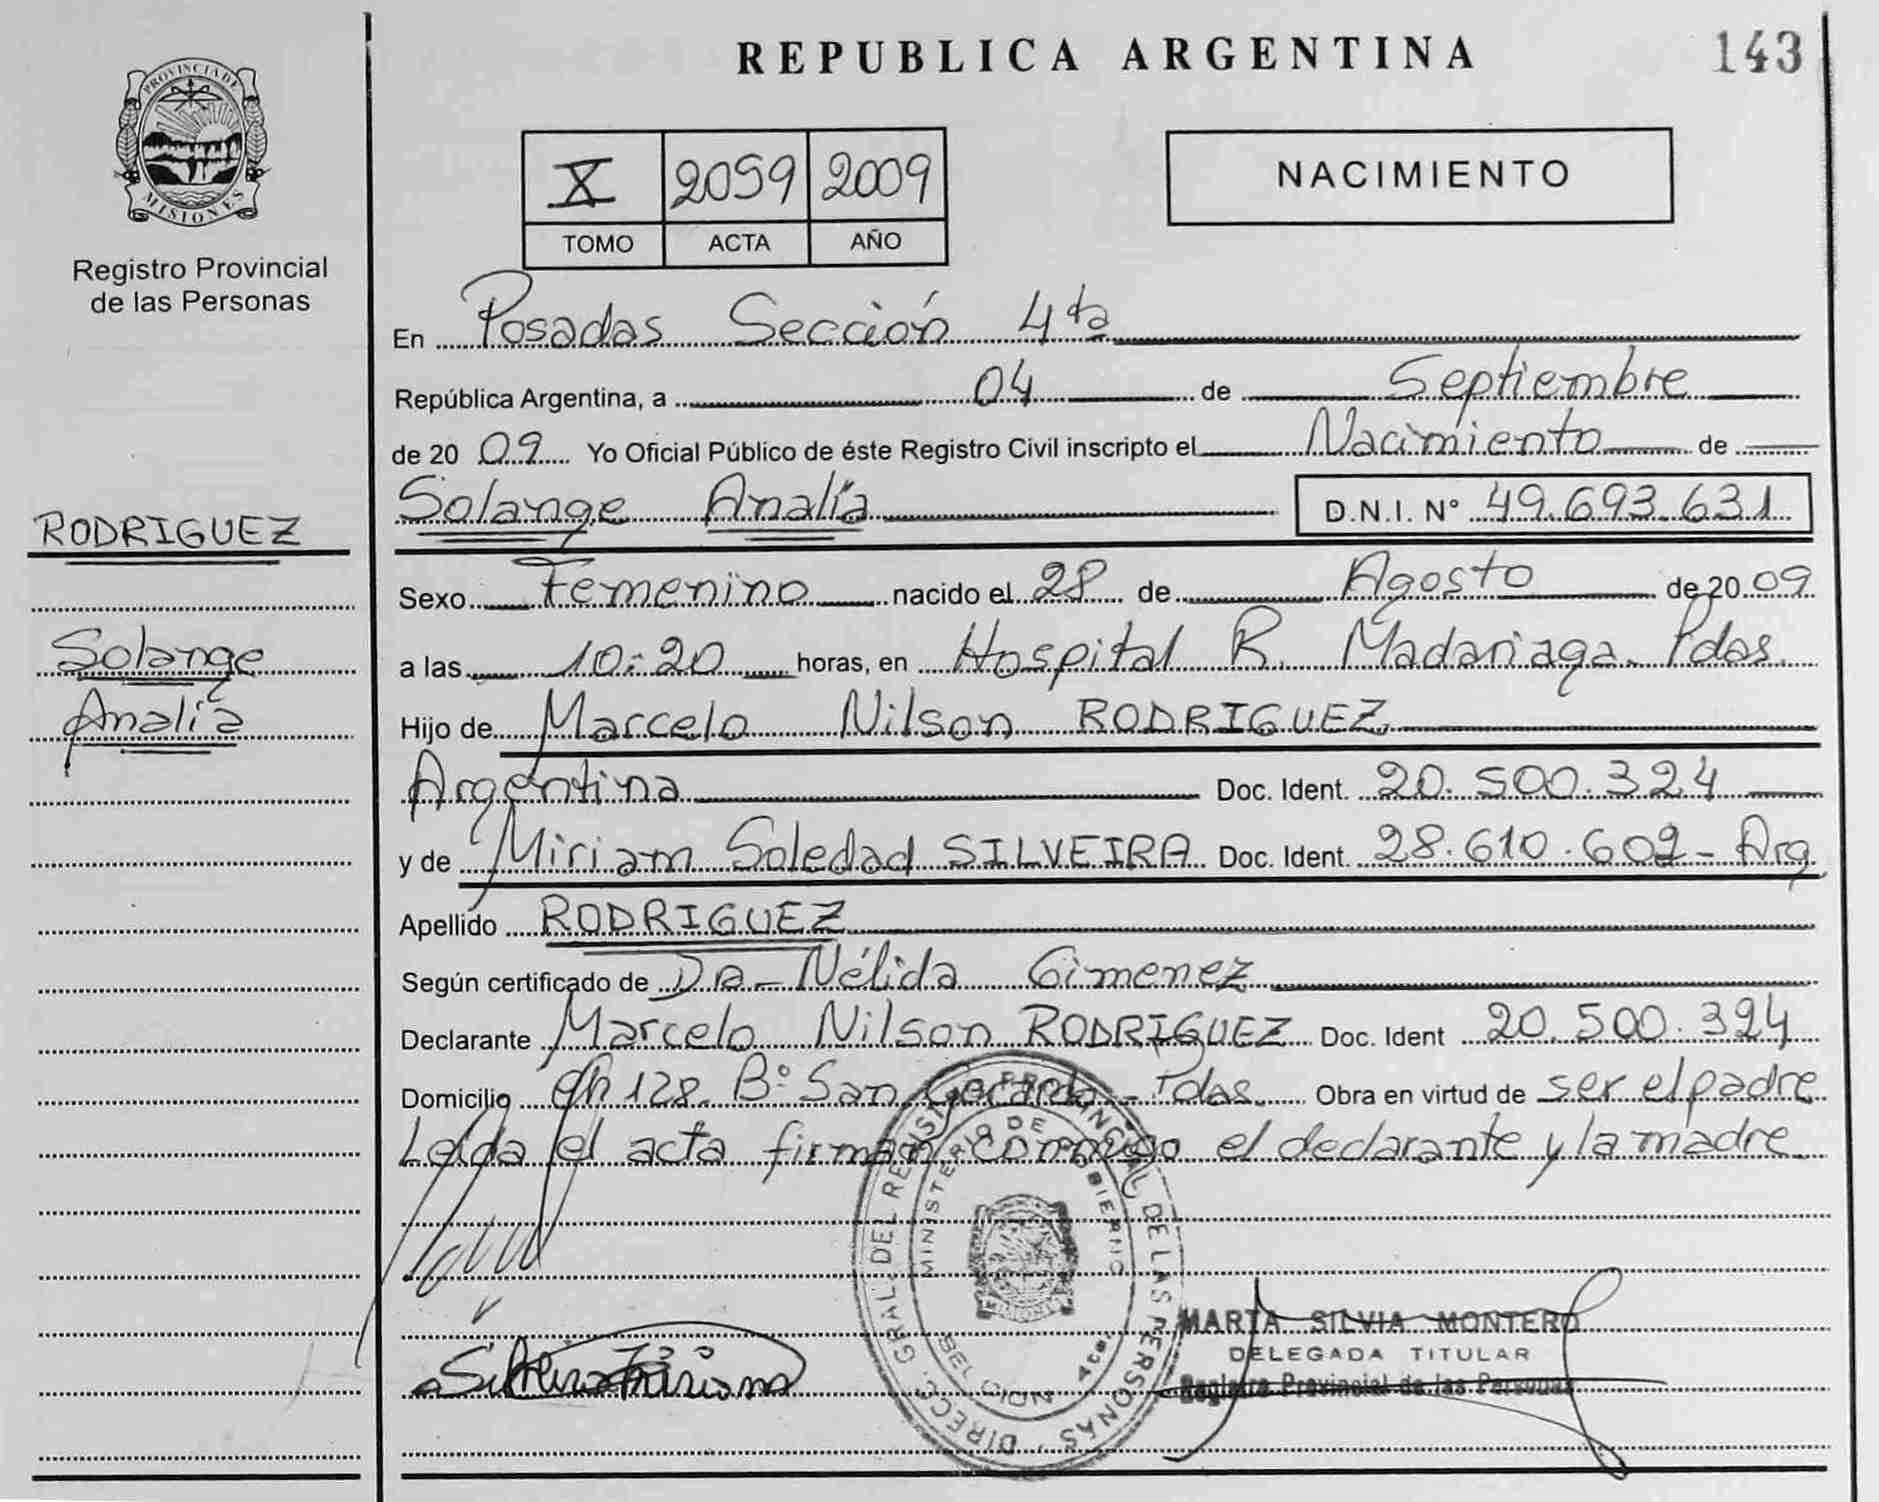 REPUBLICA ARGENTINA
143
PROVINCIA DE
MISIONES
Registro Provincial
de las Personas
X 2059 2009
TOMO ACTA AÑO
NACIMIENTO
En Posadas Sección 4ta
República Argentina, a 04 de Septiembre
de 20 09 Yo Oficial Público de éste Registro Civil inscripto el Nacimiento de
Solange Analía D.N.I. N° 49.693.631
RODRIGUEZ
Solange
Analía
Sexo Femenino nacido el 28 de Agosto de 20 09
a las 10:20 horas, en Hospital R. Madariaga. Pdas.
Hijo de Marcelo Nilson RODRIGUEZ
Argentina Doc. Ident. 20.500.324
y de Miriam Soledad SILVEIRA Doc. Ident. 28.610.602 - Arg
Apellido RODRIGUEZ
Según certificado de Nélida Gimenez
Declarante Marcelo Nilson RODRIGUEZ Doc. Ident 20.500.324
Domicilio Ch 128. B° San Gerardo - Pdas. Obra en virtud de ser el padre
Leída el acta firman conmigo el declarante y la madre
DIRECC. GRAL. DEL REGISTRO PROVINCIAL DE LAS PERSONAS
MINISTERIO DE GOBIERNO
4ta.
MARTA SILVIA MONTERO
DELEGADA TITULAR
Registro Provincial de las Personas